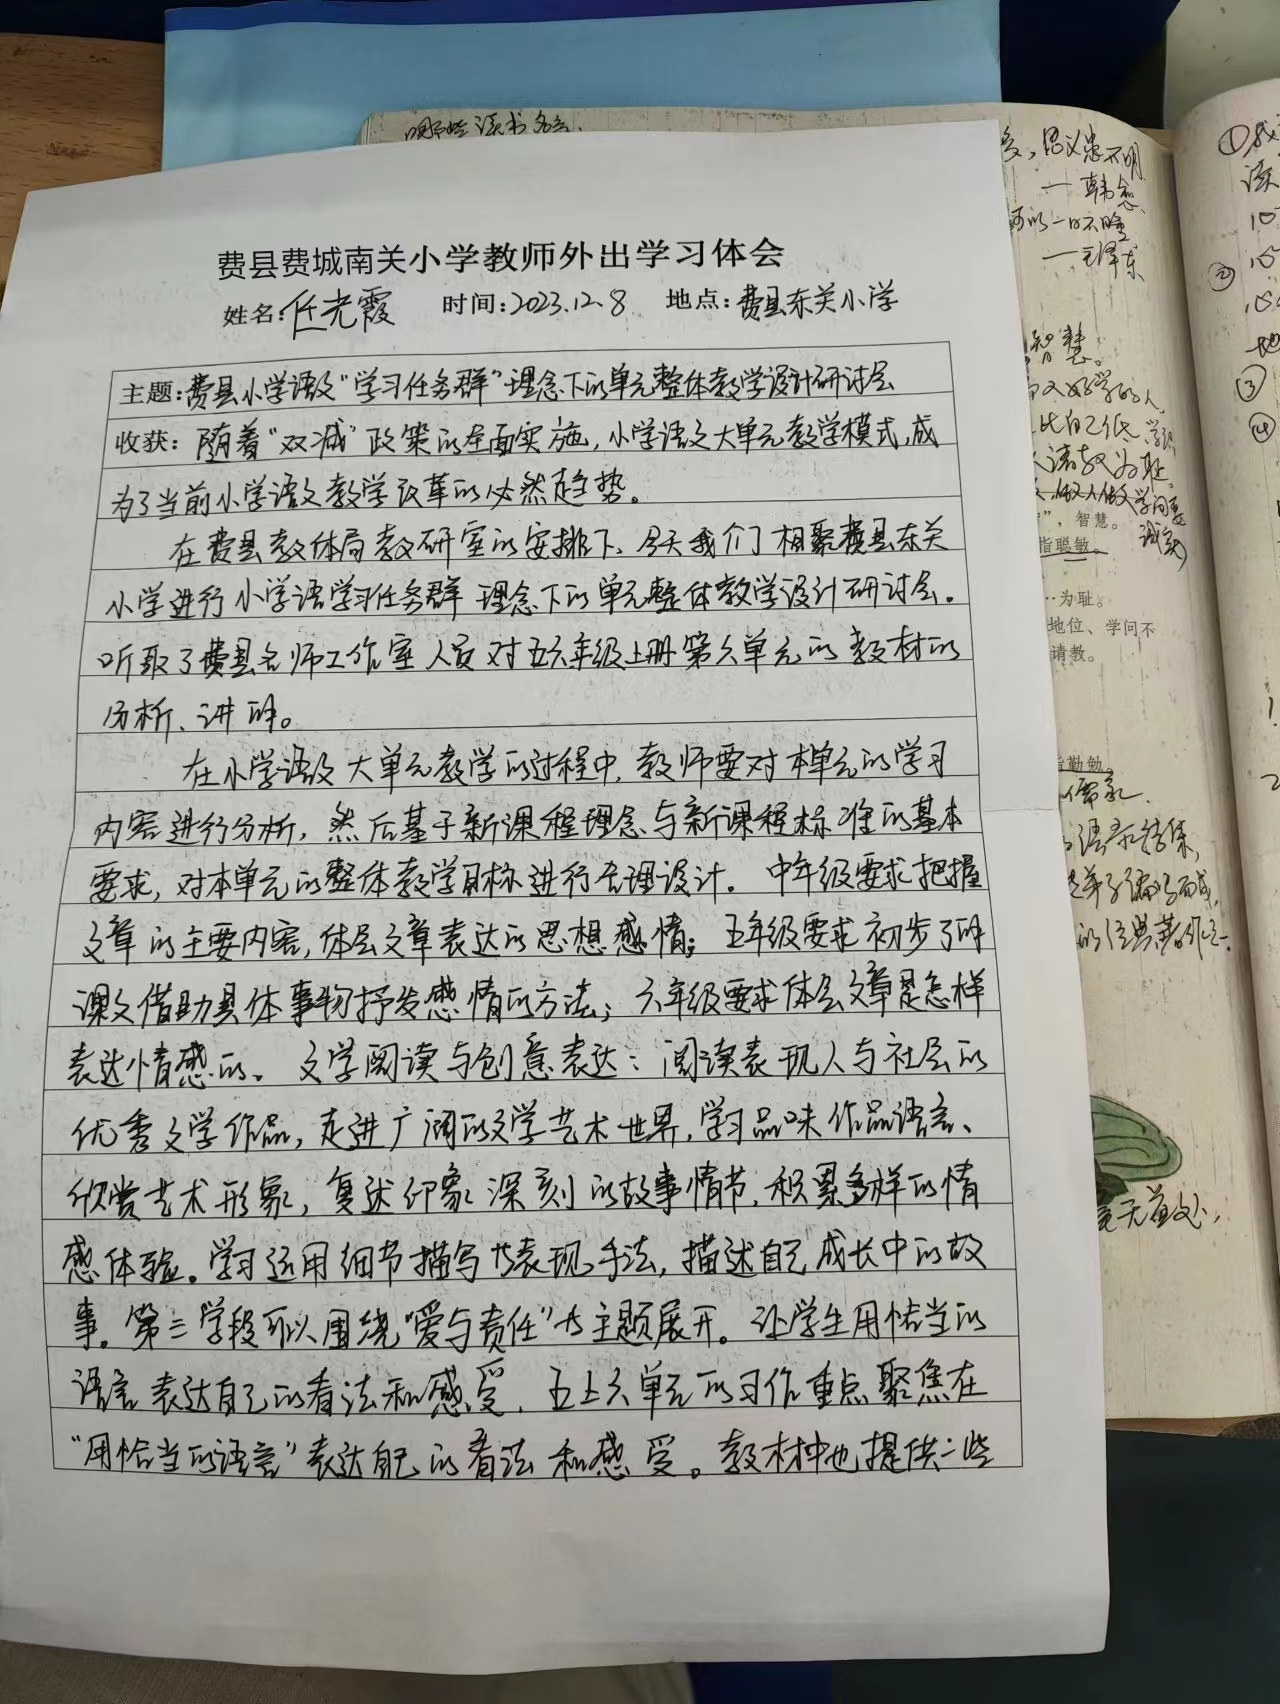 费县费城南关小学教师外出学习体会
姓名:任光霞 时间:2023.12.8 地点:费县东关小学
主题:费县小学语文“学习任务群”理念下的单元整体教学设计研讨会
收获:随着“双减”政策的全面实施,小学语文大单元教学模式,成
为了当前小学语文教学改革的必然趋势。
在费县教体局教研室的安排下、今天我们相聚费县东关
小学进行小学语学习任务群理念下的单元整体教学设计研讨会。
听取了费县名师工作室人员对五六年级上册第六单元的教材的
分析、讲解。
在小学语文大单元教学的过程中,教师要对本单元的学习
内容进行分析,然后基于新课程理念与新课程标准的基本
要求,对本单元的整体教学目标进行合理设计。中年级要求把握
文章的主要内容,体会文章表达的思想感情;五年级要求初步了解
课文借助具体事物抒发感情的方法;六年级要求体会文章是怎样
表达情感的。文学阅读与创意表达:阅读表现人与社会的
优秀文学作品,走进广阔的文学艺术世界,学习品味作品语言、
欣赏艺术形象,复述印象深刻的故事情节,积累多样的情
感体验。学习运用细节描写等表现手法,描述自己成长中的故
事。第三学段可以围绕“爱与责任”等主题展开。让学生用恰当的
语言表达自己的看法和感受,五上六单元的习作重点聚焦在
“用恰当的语言”表达自己的看法和感受。教材中也提供一些
思义患不明
—韩愈
的一日不睡
—毛泽东
智慧。
”,智慧。
指聪敏。
诚实
为耻。
地位、学问不
请教。
指勤勉。
儒家
①
②
③
④